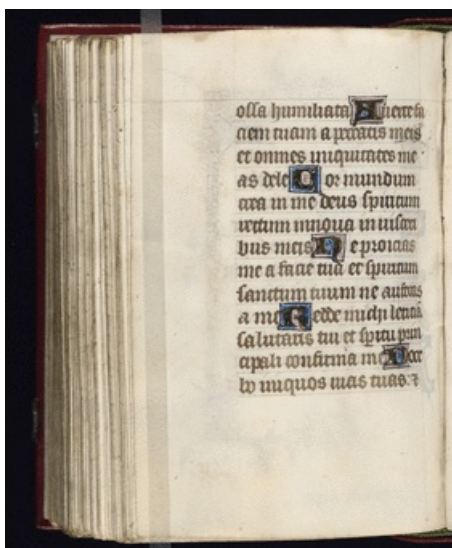 ossa humiliata Auerte fa
ciem tuam a peccatis meis
et omnes iniquitates me
as dele Cor mundum
crea in me deus spiritum
rectum innoua in uisceri
bus meis Ne proicias
me a facie tua et spiritum
sanctum tuum ne auferas
a me Redde michi leticiā
salutaris tui et spiritu prin
cipali confirma me Doce
bo iniquos uias tuas. &